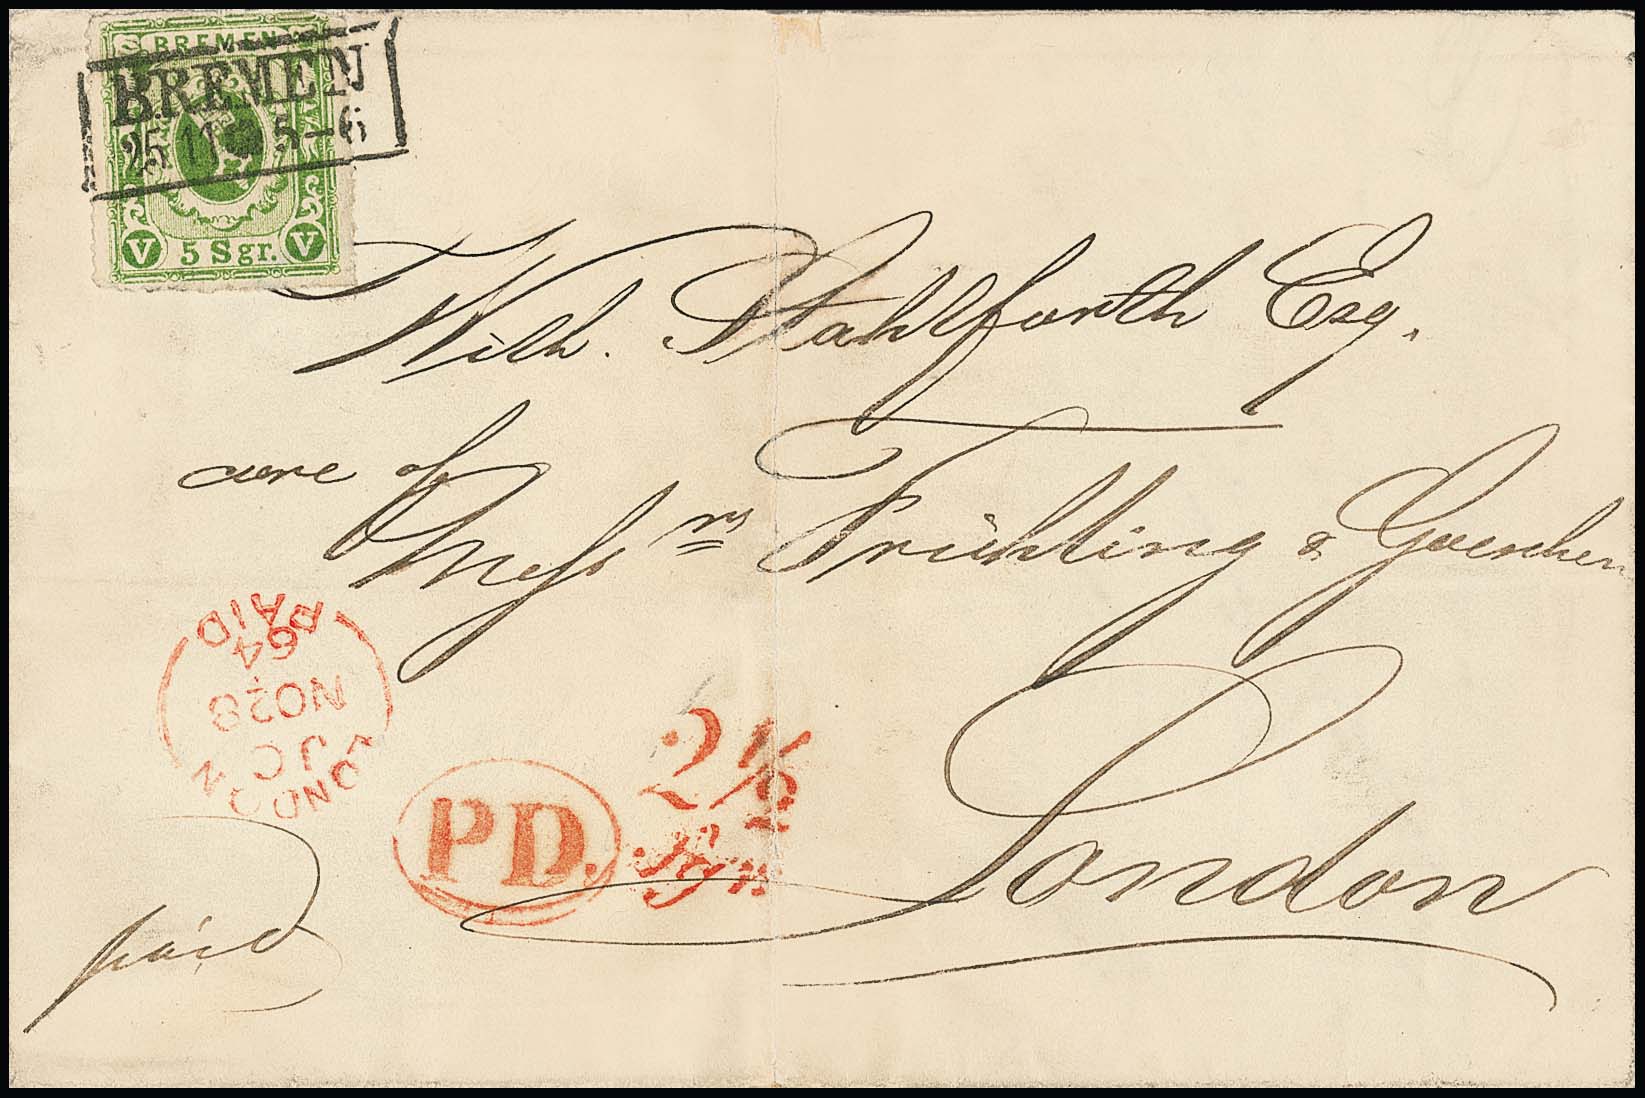 BREMEN
BREMEN
25 11 5-6
V 5 Sgr. V
Wilh. Stahlforth Esq.
care of
Mess rs Frühling & Goenchen
LONDON
JC
NO 28
64
PAID
PD.
2½
Sgr
London
paid